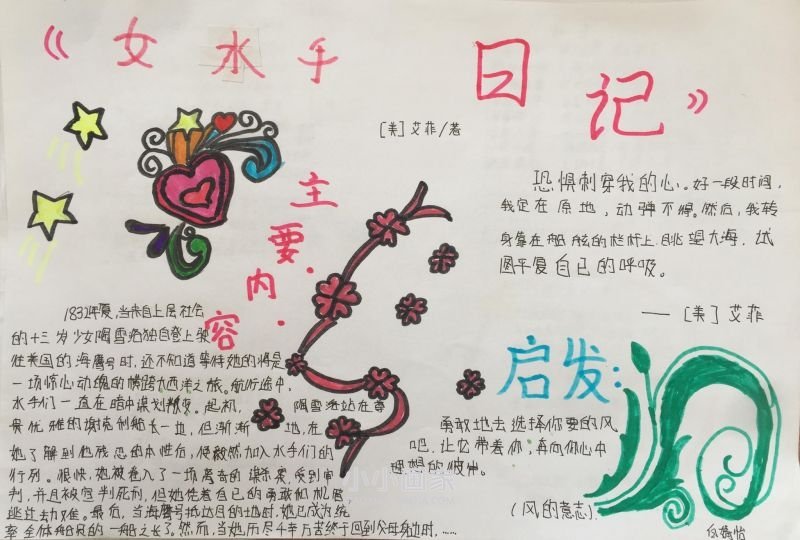 《女水手日记》
[美]艾菲/著
恐惧刺穿我的心。好一段时间，
我定在原地，动弹不得。然后，我转
身靠在船舷的栏杆上，眺望大海，试
图平复自己的呼吸。
——[美]艾菲
主要内容
1832年夏，当来自上层社会
的十三岁少女陶雪洛独自登上驶
往美国的海鹰号时，还不知道等待她的将是
一场惊心动魄的横跨大西洋之旅。航行途中，
水手们一直在暗中谋划叛变。起初，陶雪洛站在尊
贵优雅的谢克利船长一边，但渐渐地，在
她了解到他残忍的本性后，便毅然加入水手们的
行列。很快，她被卷入了一场离奇的谋杀案，受到审
判，并且被宣判死刑，但她凭着自己的勇敢和机智
逃过去劫难。最后，当海鹰号抵达目的地时，她已成为统
率全体船员的一船之长了。然而，当她历尽千辛万苦终于回到父母身边时，……
启发：
勇敢地去选择你要的风
吧，让它带着你，奔向你心中
理想的彼岸。
（风的意志）
小小世家